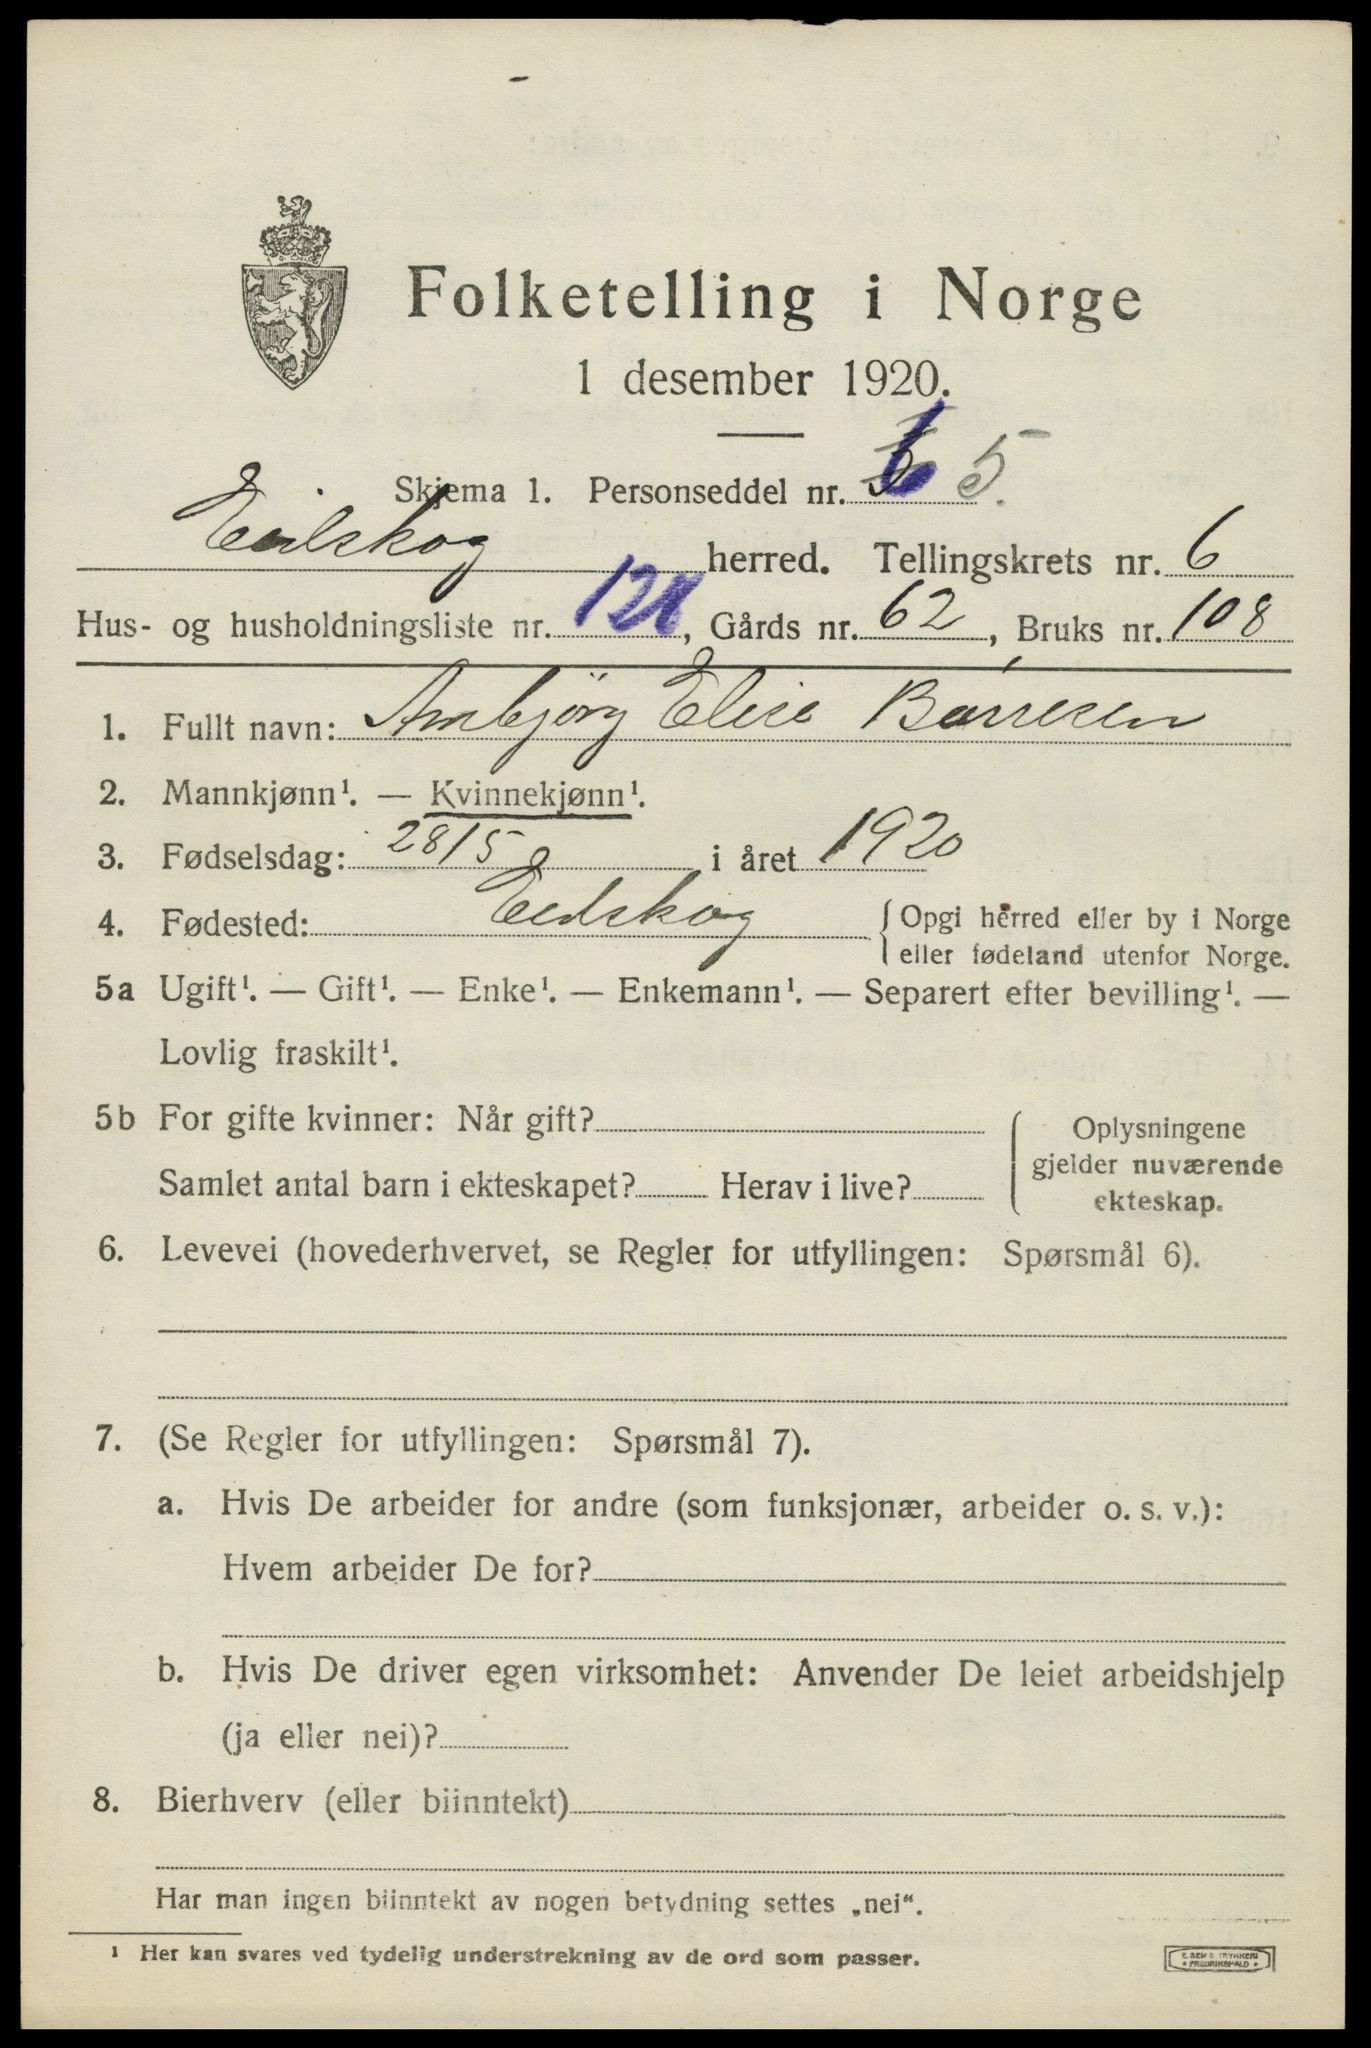 Folketelling i Norge
1 desember 1920.
Skjema 1. Personseddel nr. 5.
Eidskog herred. Tellingskrets nr. 6
Hus- og husholdningsliste nr. , Gårds nr. 62, Bruks nr. 108
1. Fullt navn: Arnbjörg Elise Børresen
2. Mannkjønn¹. — Kvinnekjønn¹.
3. Fødselsdag: 28/5 i året 1920
4. Fødested: Eidskog { Opgi herred eller by i Norge
eller fødeland utenfor Norge.
5a Ugift¹. — Gift¹. — Enke¹. — Enkemann¹. — Separert efter bevilling¹. —
Lovlig fraskilt¹.
5b For gifte kvinner: Når gift?
Samlet antal barn i ekteskapet? Herav i live?
Oplysningene
gjelder nuværende
ekteskap.
6. Levevei (hovederhvervet, se Regler for utfyllingen: Spørsmål 6).
7. (Se Regler for utfyllingen: Spørsmål 7).
a. Hvis De arbeider for andre (som funksjonær, arbeider o. s. v.):
Hvem arbeider De for?
b. Hvis De driver egen virksomhet: Anvender De leiet arbeidshjelp
(ja eller nei)?
8. Bierhverv (eller biinntekt)
Har man ingen biinntekt av nogen betydning settes „nei“.
¹ Her kan svares ved tydelig understrekning av de ord som passer.
E. SEM'S TRYKKERI
* FREDRIKSHALD *